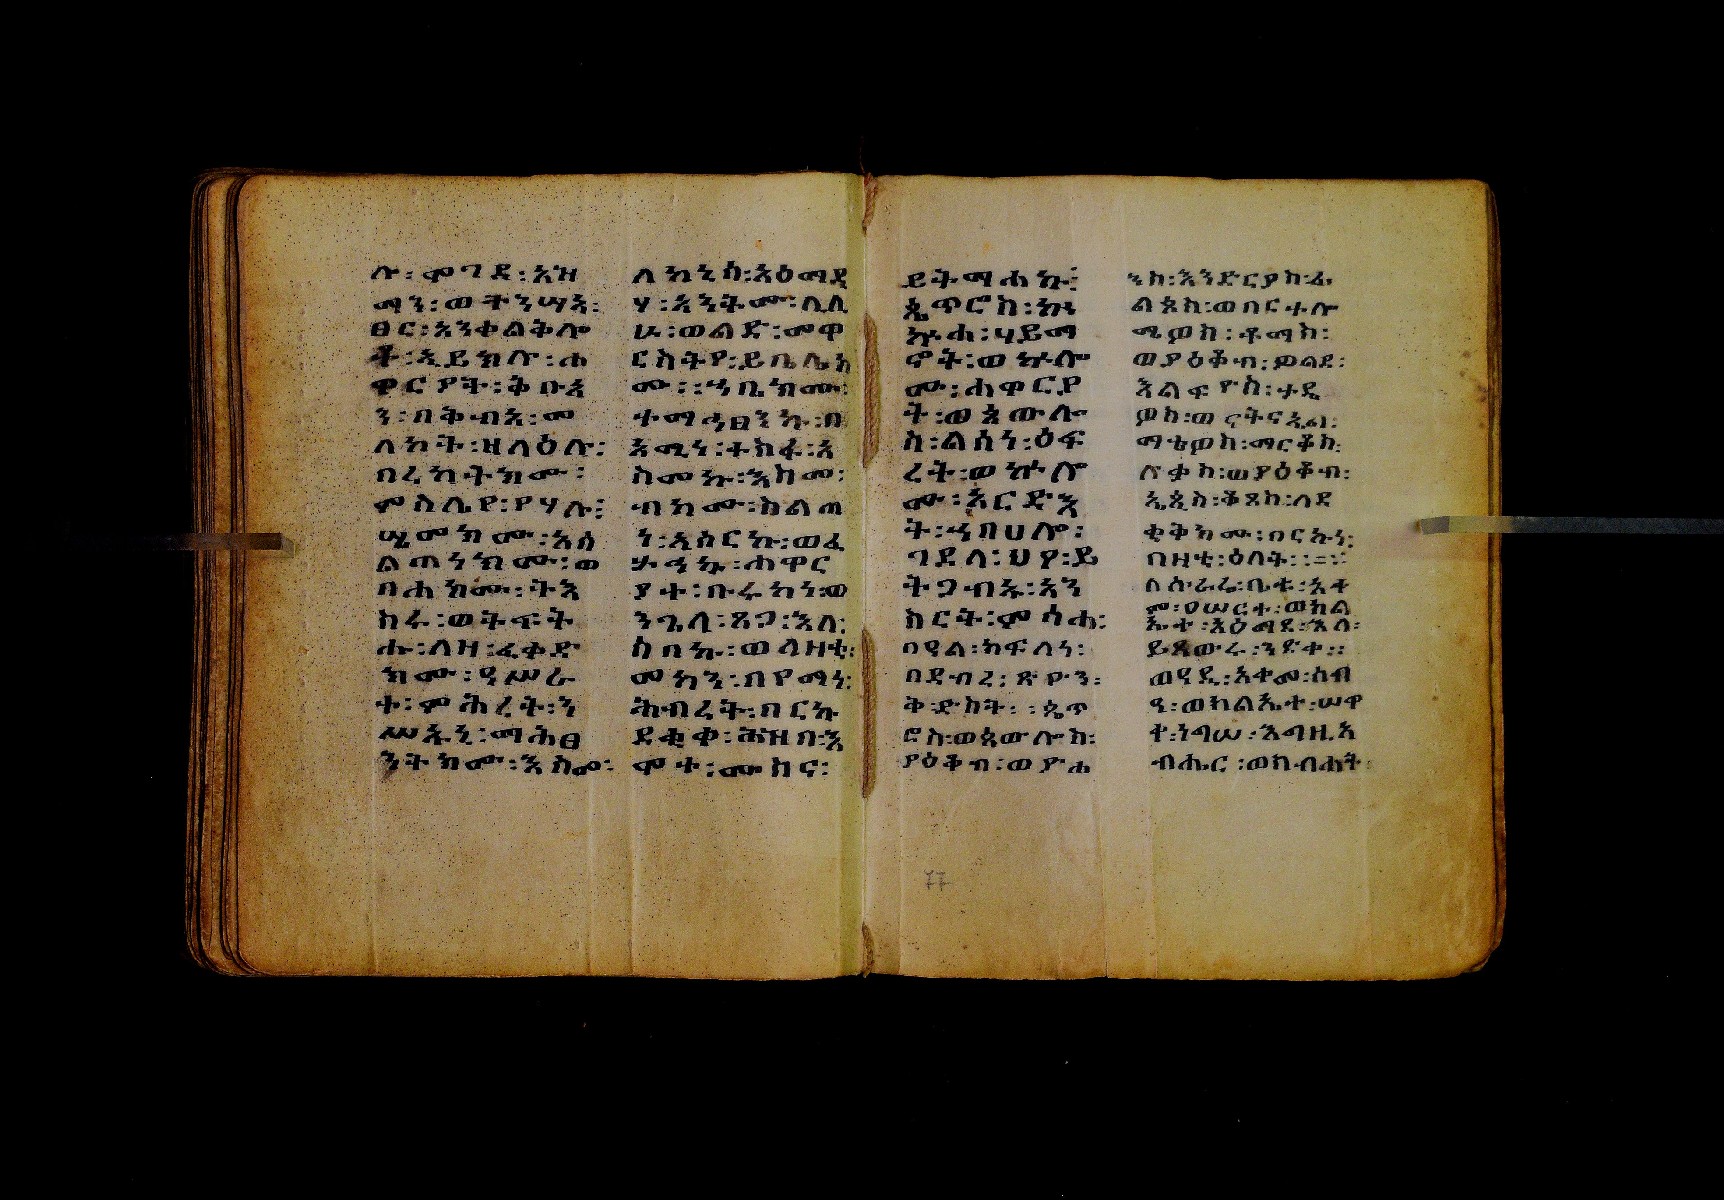 ሉ፡ሞገደ፡እዝ
ማን፡ወትንሣእ፡
ፀር፡እንቀልቅሎ
ት፡ኢይክሉ፡ሐ
ዋርያት፡ቅቡኣ
ን፡በቅብእ፡መ
ለኮት፡ዘላዕሉ፡
በረከትክሙ፡
ምስሌየ፡የሃሉ፡
ሢመክሙ፡እስ
ልጠነክሙ፡ወ
በሐክሙ፡ትእ
ክሩ፡ወትፍት
ሑ፡ለዝ፡ፈቀድ
ክሙ፡ዓሥራ
ቱ፡ምሕረት፡ን
ሥኡኒ፡ማሕፀ
ንትክሙ፡እስመ፡
ለኰኒስ፡አዕማዲ
ሃ፡አንትሙ፡ሲሲ
ሁ፡ወልድ፡መዋ
ርስትየ፡ይቤሌክ
ሙ፡፡ኀቢክሙ፡
ተማኅፀንኩ፡በ
አሚነ፡ተስፋ፡እ
ስመኩ፡እስመ፡
ብክሙ፡ስልጠ
ነ፡አስርኩ፡ወፈ
ታኅኩ፡ሐዋር
ያተ፡ቡሩካነ፡ወ
ንጌላ፡ጸጋ፡እለ፡
ሰበኩ፡ወላዘቲ፡
መካን፡በየማነ፡
ሕብረት፡በርኩ
ደቂቀ፡ሕዝበ፡እ
ሞተ፡ሙስና፡
ይትማሐኩ፡
ጴጥሮስ፡ኰ
ኵሐ፡ሃይማ
ኖት፡ወኵሎ
ሙ፡ሐዋርያ
ት፡ወጳውሎ
ስ፡ልሳነ፡ዕፍ
ረት፡ወኵሎ
ሙ፡አርድእ
ት፡ኀበሀሎ፡
ገደላ፡ህየ፡ይ
ትጋብኡ፡እን
ከርት፡ምሳሐ፡
በዓል፡ካፍላነ፡
በደብረ፡ጽዮን፡
ቅድስት፡፡ጴጥ
ሮስ፡ወጳውሎስ፡
ያዕቆብ፡ወዮሐ
ንስ፡እንድርያስ፡ፊ
ልጶስ፡ወበርተሎ
ሜዎስ፡ቶማስ፡
ወያዕቆብ፡ወልደ፡
እልፍዮስ፡ታዴ
ዎስ፡ወናትናኤል፡
ማቴዎስ፡ማርቆስ፡
ሉቃስ፡ወያዕቆብ፡
ኤጲስ፡ቆጶስ፡ለደ
ቂቅክሙ፡በርኩነ፡
በዛቲ፡ዕለት፡፡
ለሰራሬ፡ቤቱ፡አቀ
መ፡ዐሠርቱ፡ወክል
ኤተ፡አዕማደ፡እለ፡
ይጸውሩ፡ንድቀ፡፡
ወዓዲ፡አቀመ፡ሰብ
ዓ፡ወክልኤተ፡ሠዋ
ተ፡ነግሠ፡እግዚአ
ብሔር፡ወስብሐት፡
77